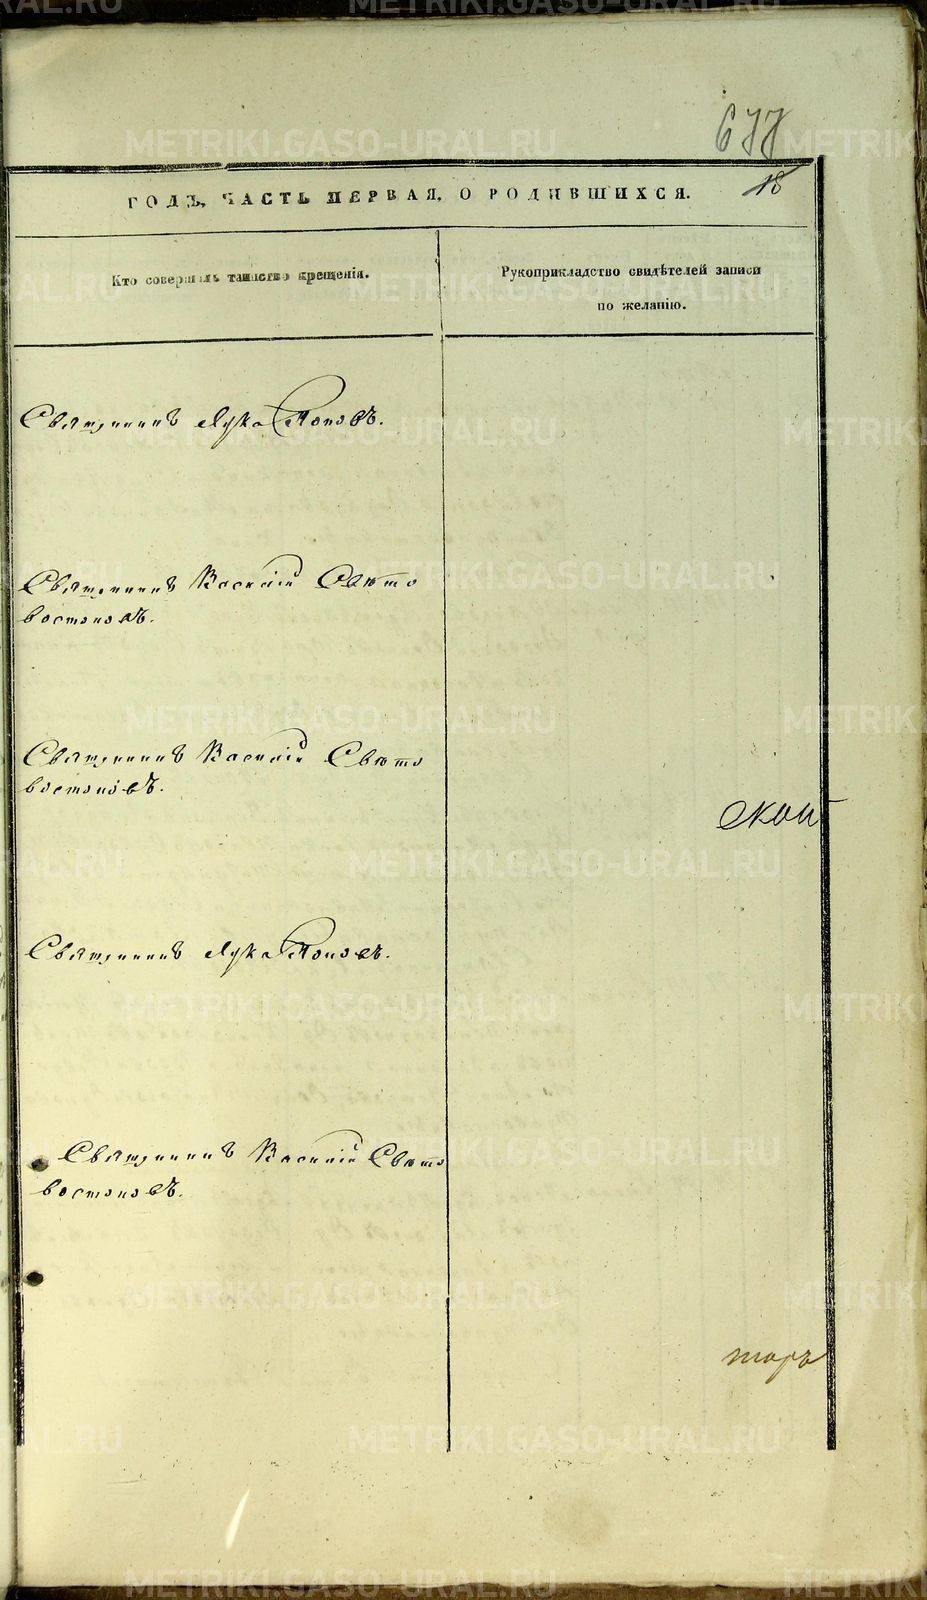 METRIKI.GASO-URAL.RU
677
ГОДЪ, ЧАСТЬ ПЕРВАЯ, О РОДИВШИХСЯ.
18
Кто совершалъ таинство крещенія.
Рукоприкладство свидѣтелей записи
по желанію.
Священникъ Лука Поповъ.
Священникъ Василій Свѣто
востоковъ.
Священникъ Василій Свѣто
востоковъ.
Священникъ Лука Поповъ.
Священникъ Василій Свѣто
востоковъ.